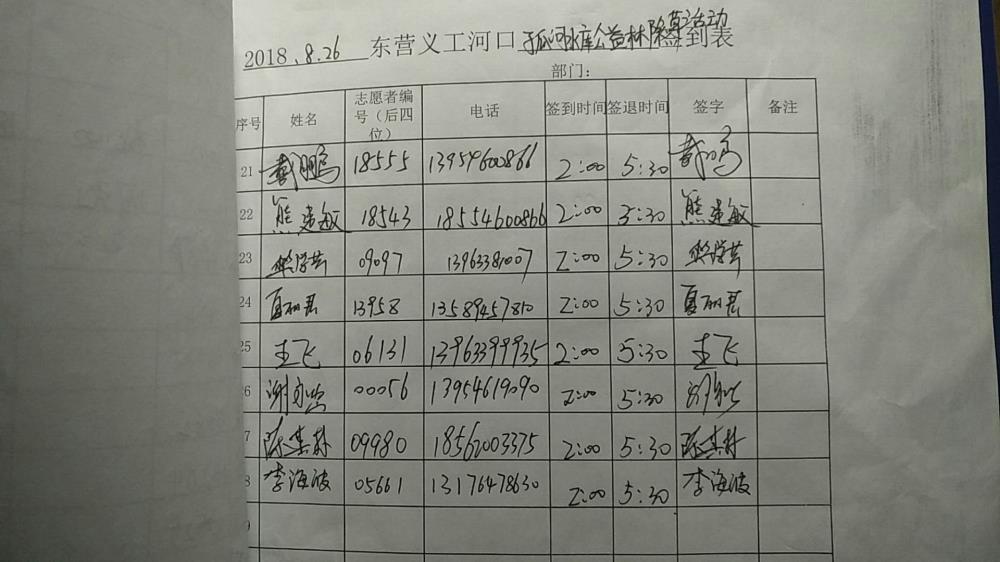 2018.8.26 东营义工河口孤河水库公益林除草活动签到表
部门：
序号 姓名 志愿者编号（后四位） 电话 签到时间 签退时间 签字 备注
21 戴鹏 18555 13954600866 2:00 5:30 戴鹏
22 熊建敏 18543 18554600866 2:00 5:30 熊建敏
23 09097 13963381007 2:00 5:30
24 夏丽君 13958 13589457810 2:00 5:30 夏丽君
25 王飞 06131 13963399935 2:00 5:30 王飞
26 谢 00056 13954619090 2:00 5:30
7 陈其林 09980 18562003375 2:00 5:30 陈其林
8 李海波 05661 13176478630 2:00 5:30 李海波
9